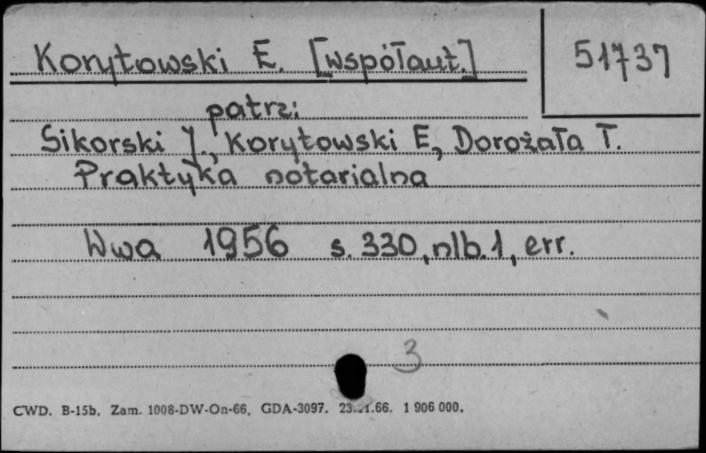 Korytowski E. [współaut.]
51737
patrz:
Sikorski J., Korytowski E, Dorożała T.
Praktyka notarialna
Wwa 1956 s. 330, nlb. 1, err.
3
CWD. B-15b. Zam. 1008-DW-On-66. GDA-3097. 1 906 000.